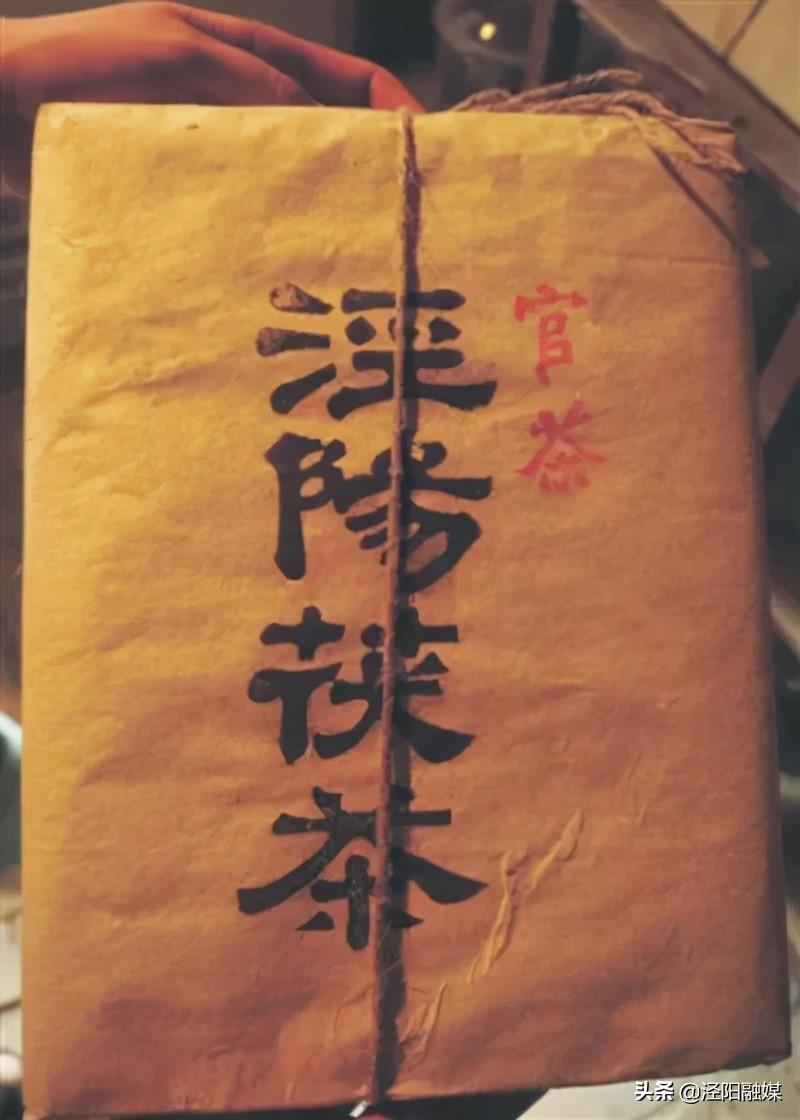 官茶
涇陽茯茶
头条 @泾阳融媒